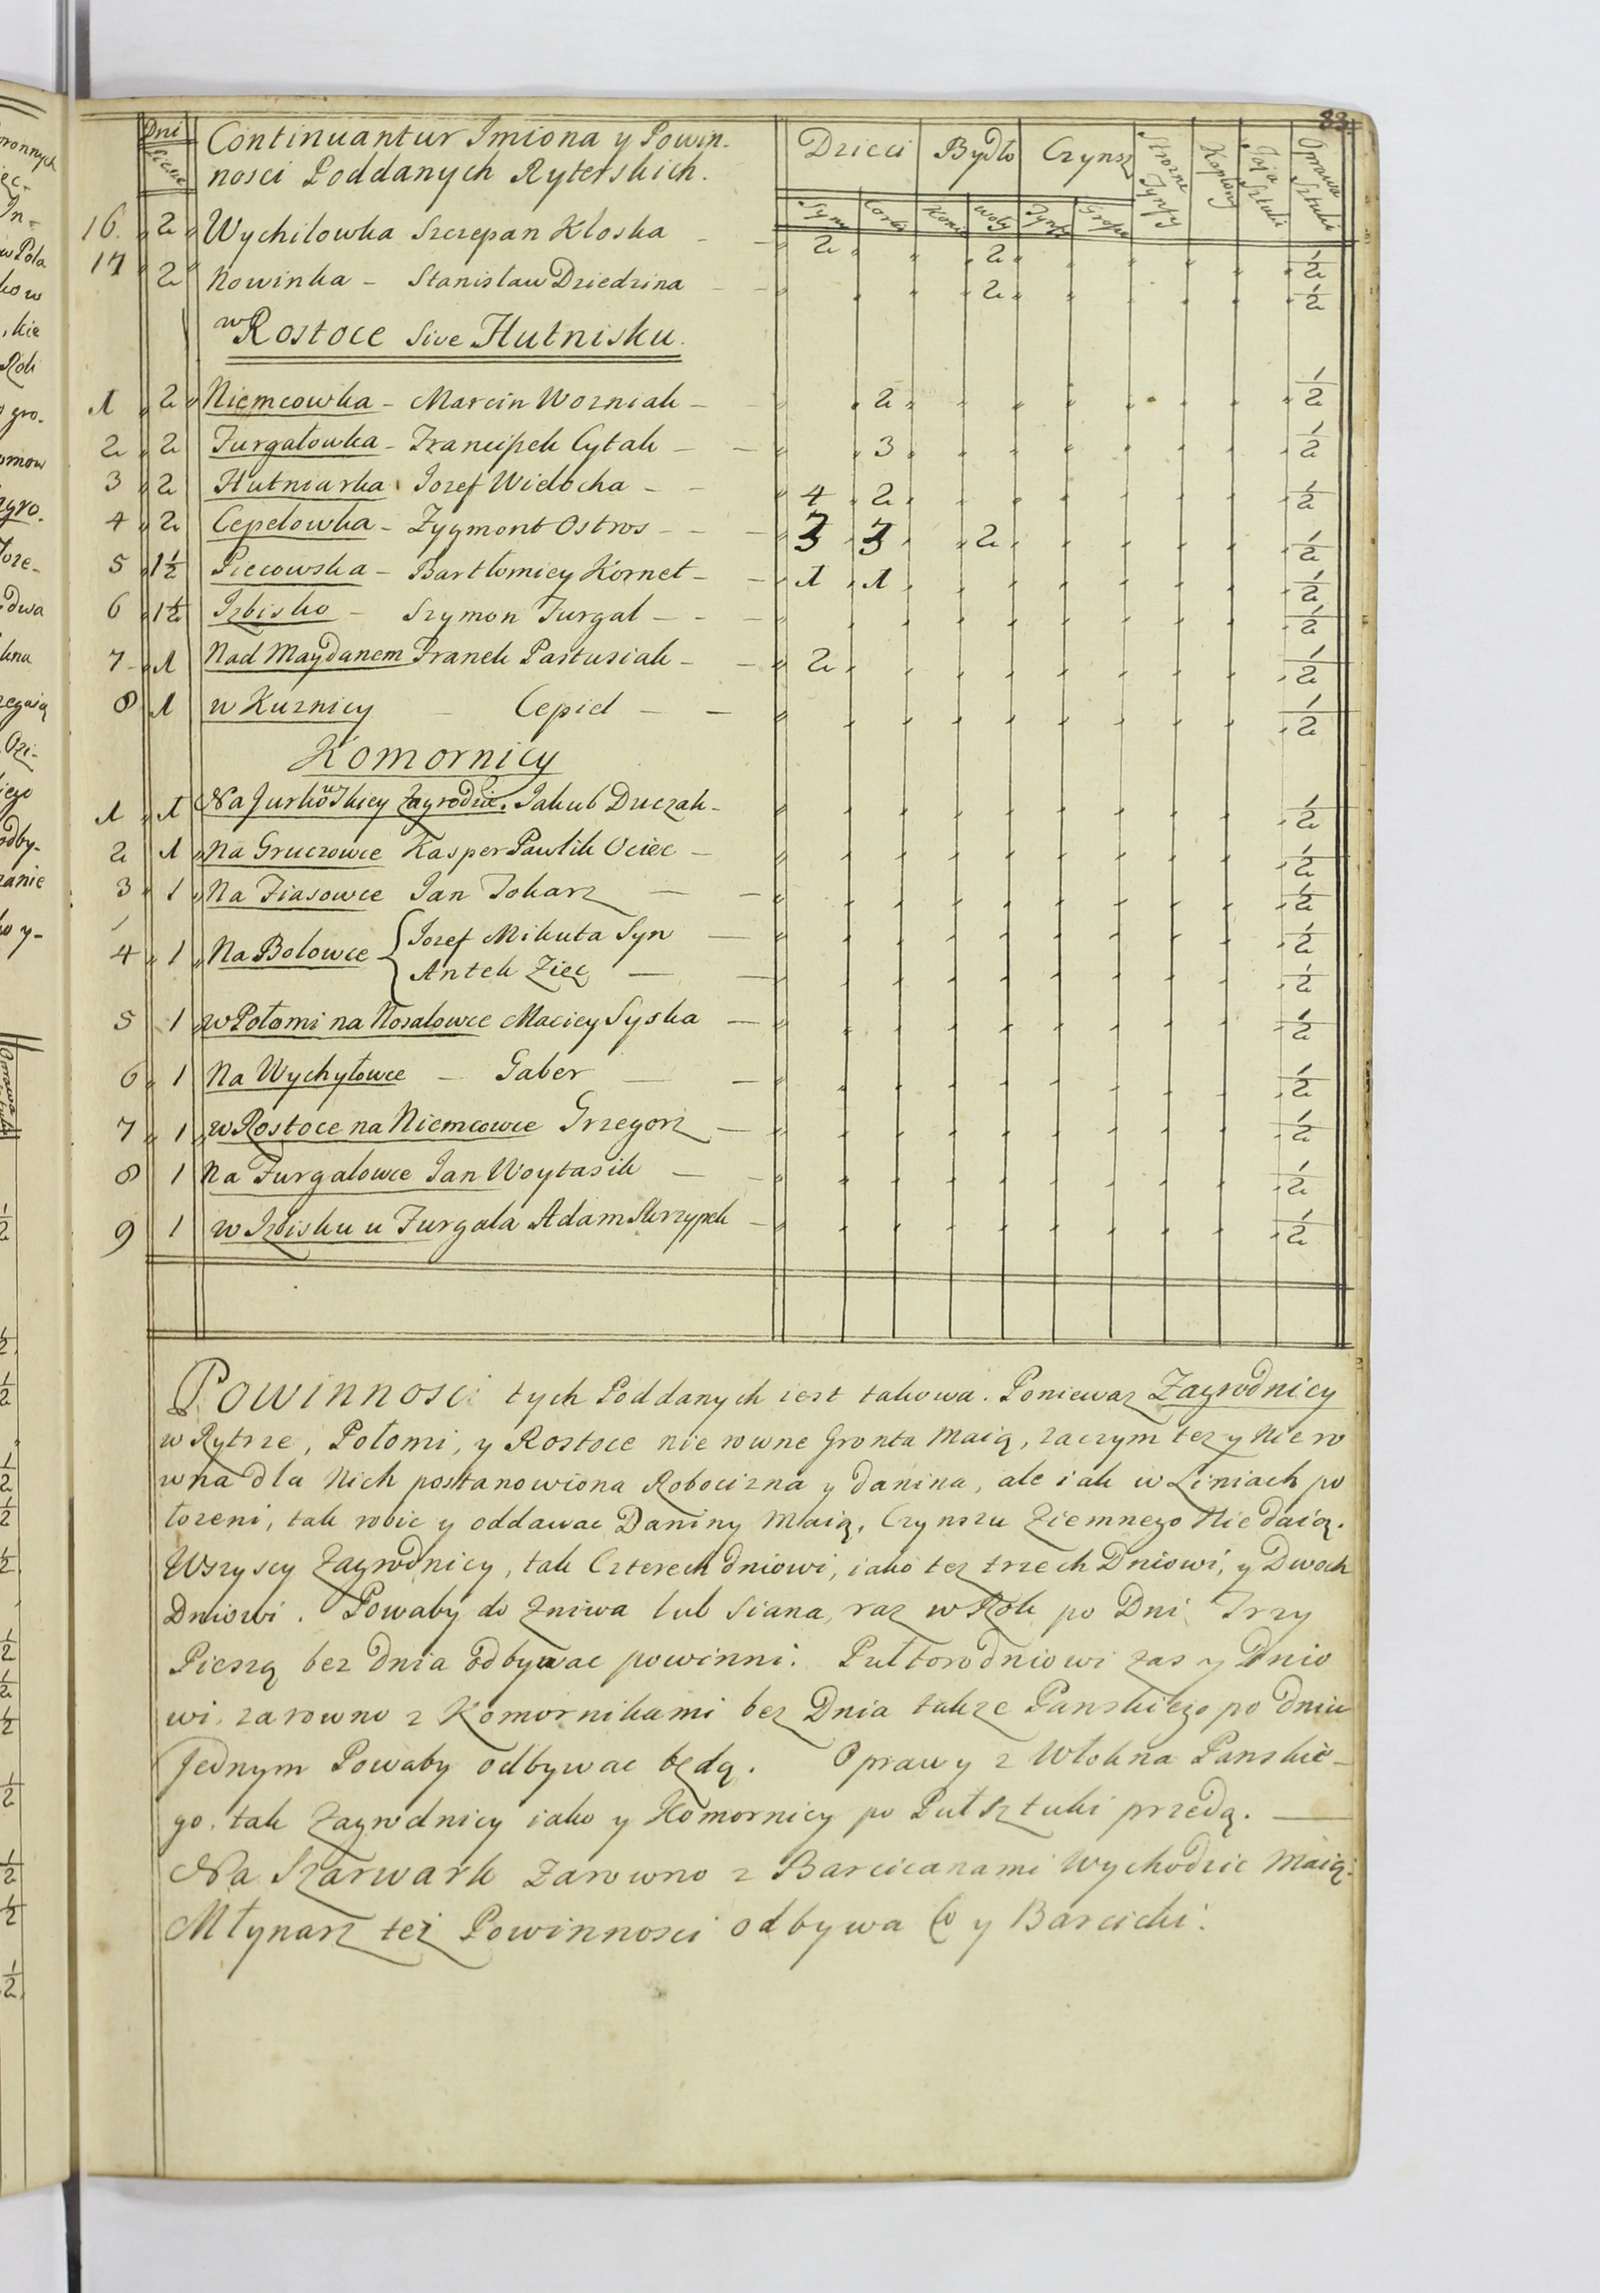 83
Dni Piesze
Continuantur Imiona y Powin-
nosci Poddanych Ryterskich.
Dzieci Bydło Czynsz Strozne Tynfy Kapłony Jaja Sztuki Oprawa Sztuki
Syny Corki Konie Woły Tynfy Grosze
16. 2 Wychiłowka Szczepan Kloska 2 2 1/2
17 2 Nowinka - Stanisław Dziedzina 2 1/2
w Rostoce sive Hutnisku.
1 2 Niemcowka - Marcin Wozniak 2 1/2
2 2 Furgałowka - Franciszek Cytak 3 1/2
3 2 Hutniarka Jozef Widocha 4 2 1/2
4 2 Cepelowka - Zygmont Ostros 3 3 2 1/2
5 1 1/2 Piecowska - Bartłomiey Kornet 1 1 1/2
6 1 1/2 Izbisko - Szymon Furgal 1/2
7 1 Nad Maydanem Franek Pastusiak 2 1/2
8 1 w Kuznicy - Cepiel 1/2
Komornicy
1 1 Na Jurkowskiey Zagrodzie. Jakub Duczak 1/2
2 1 Na Gruczowce Kasper Pawlik Ociec 1/2
3 1 Na Fiasowce Jan Tokarz 1/2
4 1 Na Bolowce { Jozef Mikuta Syn 1/2
Antek Zięc 1/2
5 1 w Połomi na Nosalowce Maciey Syska 1/2
6 1 Na Wychyłowce - Gaber 1/2
7 1 w Rostoce na Niemcowce Grzegorz 1/2
8 1 Na Furgalowce Jan Woytasik 1/2
9 1 w Izbisku u Furgala Adam Skrzypek 1/2
Powinnosc tych Poddanych iest takowa. Poniewaz Zagrodnicy
w Rytrze, Połomi, y Rostoce nie rowne Gronta Maią, zaczym tez y Niero
wna dla Nich postanowiona Robocizna y Danina, ale iak w Liniach po
łozeni, tak robic y oddawac Daniny Maią, Czynszu Ziemnego Nie daią.
Wszyscy Zagrodnicy, tak Czterech dniowi, iako tez trzech Dniowi, y Dwoch
Dniowi. Powaby do Zniwa lub Siana, raz w Rok po Dni Trzy
Pieszą bez Dnia odbywac powinni. Pułtorodniowi zas y Dnio
wi, zarowno z Komornikami bez Dnia takze Panskiego po dniu
Jednym Powaby odbywac będą. Oprawy z Włokna Panskie-
go, tak Zagrodnicy iako y Komornicy po Puł Sztuki przedą.
Na Szarwark Zarowno z Barcicanami Wychodzic Maią.
Młynarz tez Powinnosci odbywa Co y Barcicki.